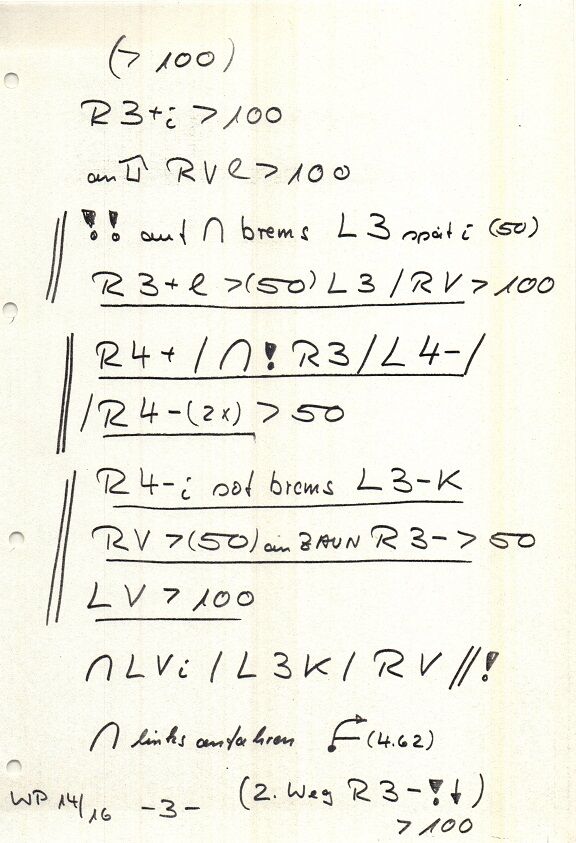 (> 100)
R3+i > 100
an RVl > 100
!! auf ∩ brems L3 spät i (50)
R3+l >(50) L3 / RV > 100
R4+ / ∩! R3 / L4- /
/ R4-(2x) > 50
R4-i sof brems L3-K
RV >(50) an ZAUN R3- > 50
LV > 100
∩ LVi / L3K / RV //!
∩ links anfahren (4.62)
WP 14/16 -3- (2. Weg R3-!↓)
> 100